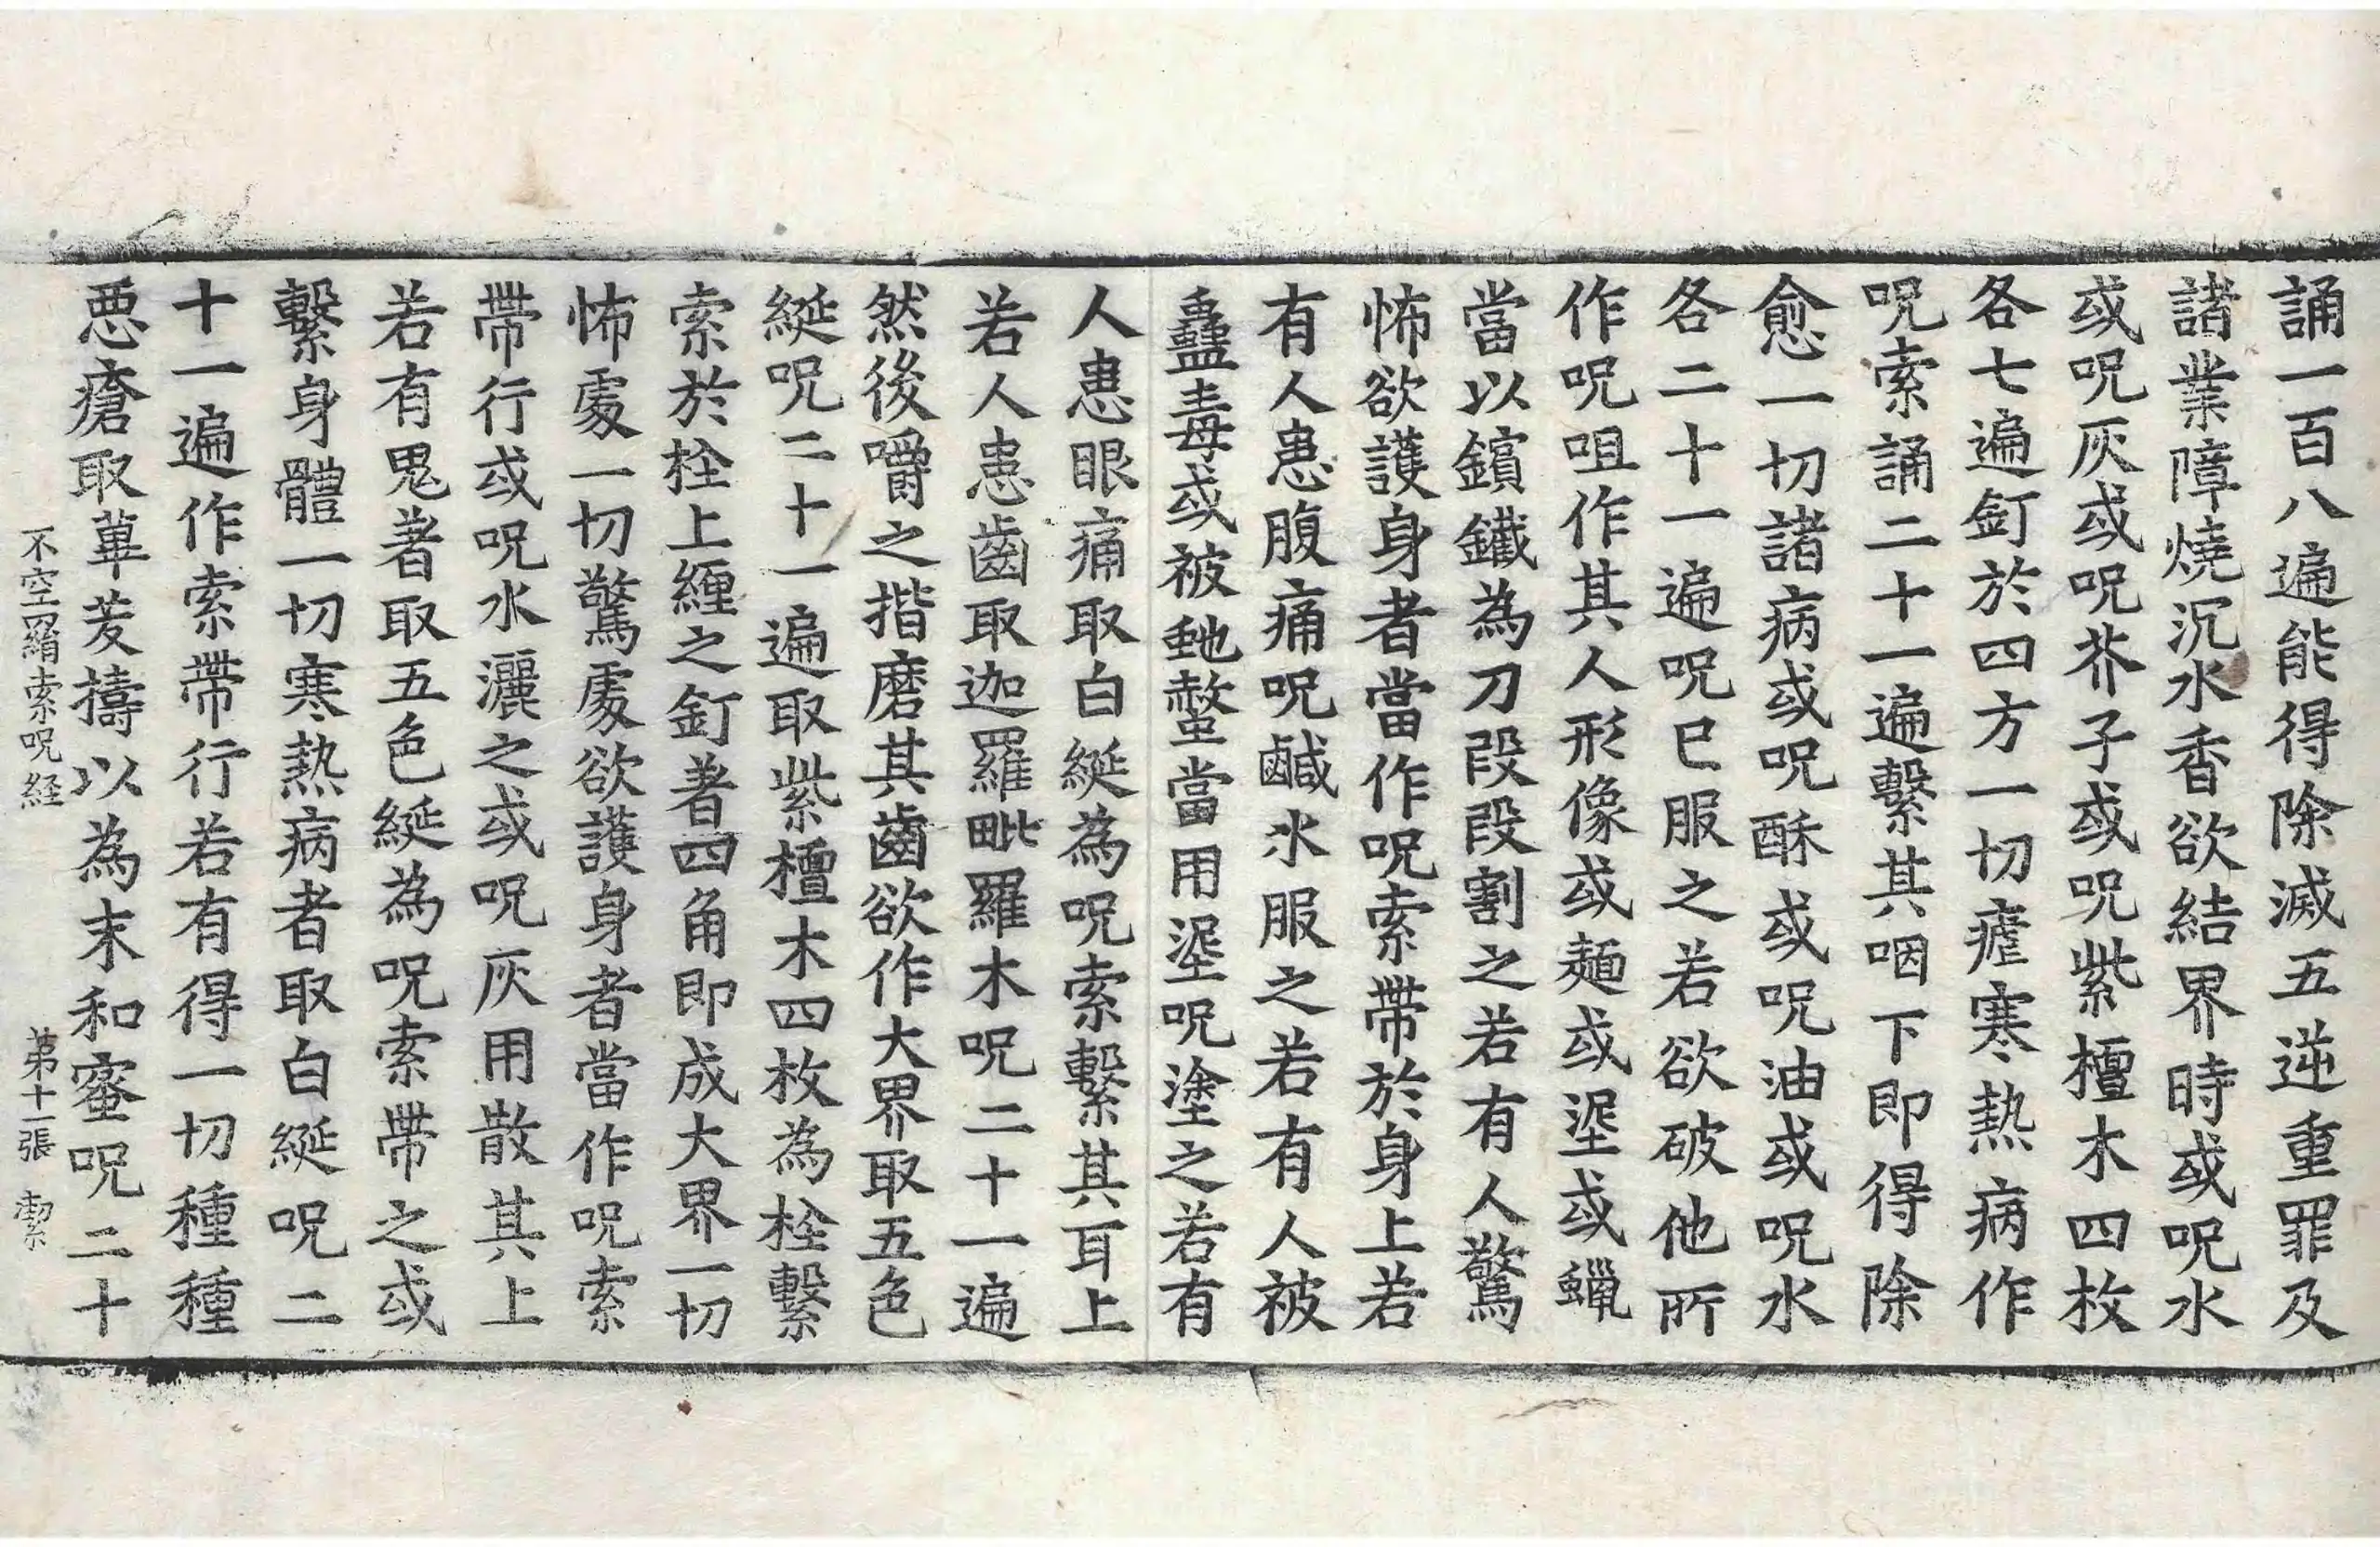 誦一百八遍能得除滅五逆重罪及
諸業障燒沉水香欲結界時或呪水
或呪灰或呪芥子或呪紫檀木四枚
各七遍釘於四方一切瘧寒熱病作
呪索誦二十一遍繫其咽下即得除
愈一切諸病或呪酥或呪油或呪水
各二十一遍呪已服之若欲破他所
作呪咀作其人形像或麵或埿或蠟
當以鑌鐵為刀段段割之若有人驚
怖欲護身者當作呪索帶於身上若
有人患腹痛呪鹹水服之若有人被
蠱毒或被虵螫當用埿呪塗之若有
人患眼痛取白綖為呪索繫其耳上
若人患齒取迦羅毗羅木呪二十一遍
然後嚼之揩磨其齒欲作大界取五色
綖呪二十一遍取紫檀木四枚為栓繫
索於栓上纏之釘著四角即成大界一切
怖處一切驚處欲護身者當作呪索
帶行或呪水灑之或呪灰用散其上
若有鬼著取五色綖為呪索帶之或
繫身體一切寒熱病者取白綖呪二
十一遍作索帶行若有得一切種種
惡瘡取蓽茇擣以為末和蜜呪二十
不空罥索呪経 苐十一張 潔